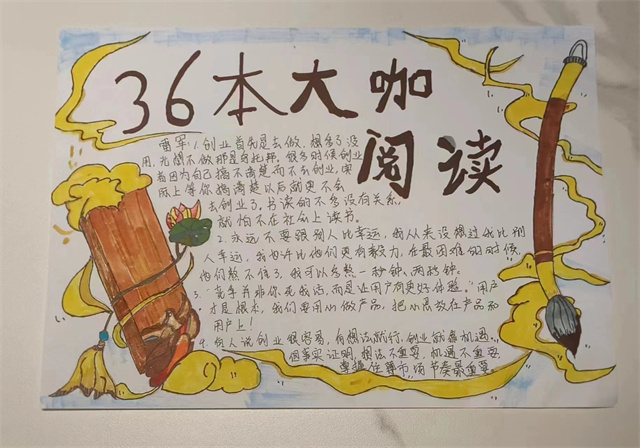 36本大咖
阅读
雷军：1.创业首先是去做，想多了没
用，光想不做那是乌托邦。很多时候创业
者因为自己搞不清楚而不去创业，实
际上等你搞清楚以后就更不会
去创业了，书读的不多没有关系，
就怕不在社会上读书。
2.永远不要跟别人比幸运，我从来没想过我比别
人幸运，我也许比他们更有毅力，在最困难的时候
他们熬不住了，我可以多熬一秒钟、两秒钟。
3.竞争并非你死我活，而是让用户有更好体验。“用户
才是根本，我们要用心做产品，把心思放在产品和
用户上！
4.有人说创业很容易，有想法就行，创业就靠机遇，
但事实证明，想法不重要，机遇不重要
掌握住市的节奏最重要。